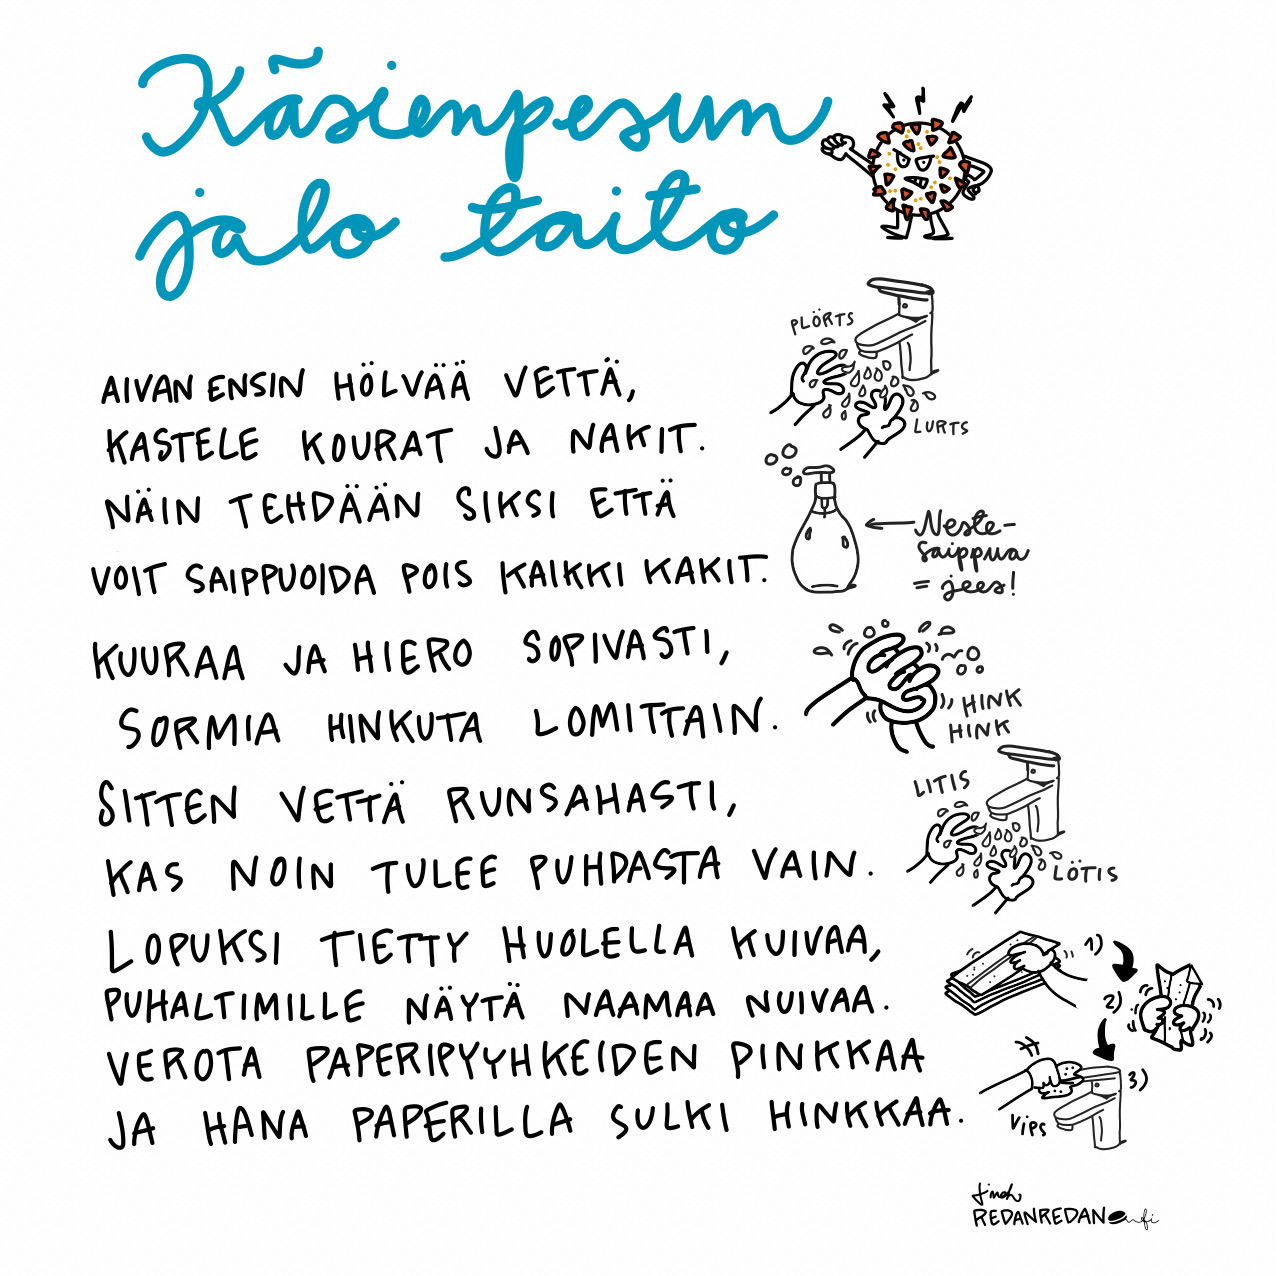 Käsienpesun
jalo taito
PLÖRTS
LURTS
AIVAN ENSIN HÖLVÄÄ VETTÄ,
KASTELE KOURAT JA NAKIT.
NÄIN TEHDÄÄN SIKSI ETTÄ
VOIT SAIPPUOIDA POIS KAIKKI KAKIT.
Neste-
saippua
= jees!
KUURAA JA HIERO SOPIVASTI,
SORMIA HINKUTA LOMITTAIN.
HINK
HINK
SITTEN VETTÄ RUNSAHASTI,
KAS NOIN TULEE PUHDASTA VAIN.
LITIS
LÖTIS
LOPUKSI TIETTY HUOLELLA KUIVAA,
PUHALTIMILLE NÄYTÄ NAAMAA NUIVAA.
VEROTA PAPERIPYYHKEIDEN PINKKAA
JA HANA PAPERILLA SULKI HINKKAA.
1)
2)
3)
Vips
REDANREDAN